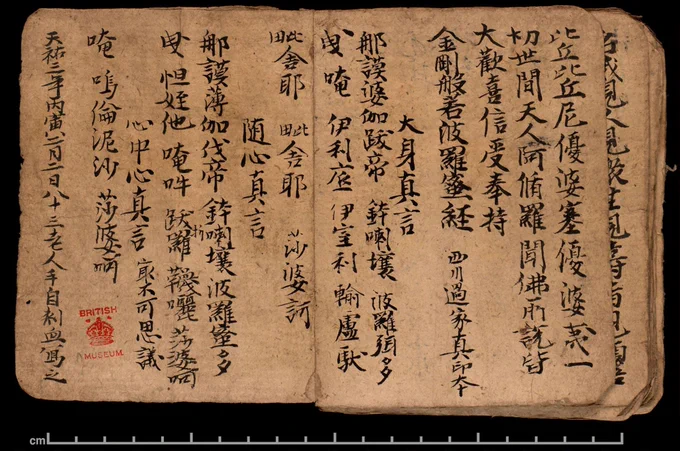 比丘比丘尼優婆塞優婆夷一
切世間天人阿脩羅聞佛所說皆
大歡喜信受奉持
金剛般若波羅蜜經 西川過家真印本
大身真言
那謨婆伽跋帝 鉢喇壤 波羅弭多
曳 唵 伊利底 伊室利 輸盧馱
毗舍耶 毗舍耶 莎婆訶
随心真言
那謨薄伽伐帝 鉢喇壤波羅蜜多
曳 怛姪他 唵吽 跋折羅 韈囉 莎婆訶
心中心真言 㝡不可思議
唵 嗚倫泥沙 莎婆訶
天祐三年丙寅二月二日八十三老人手自刺血寫之
BRITISH
MUSEUM
cm